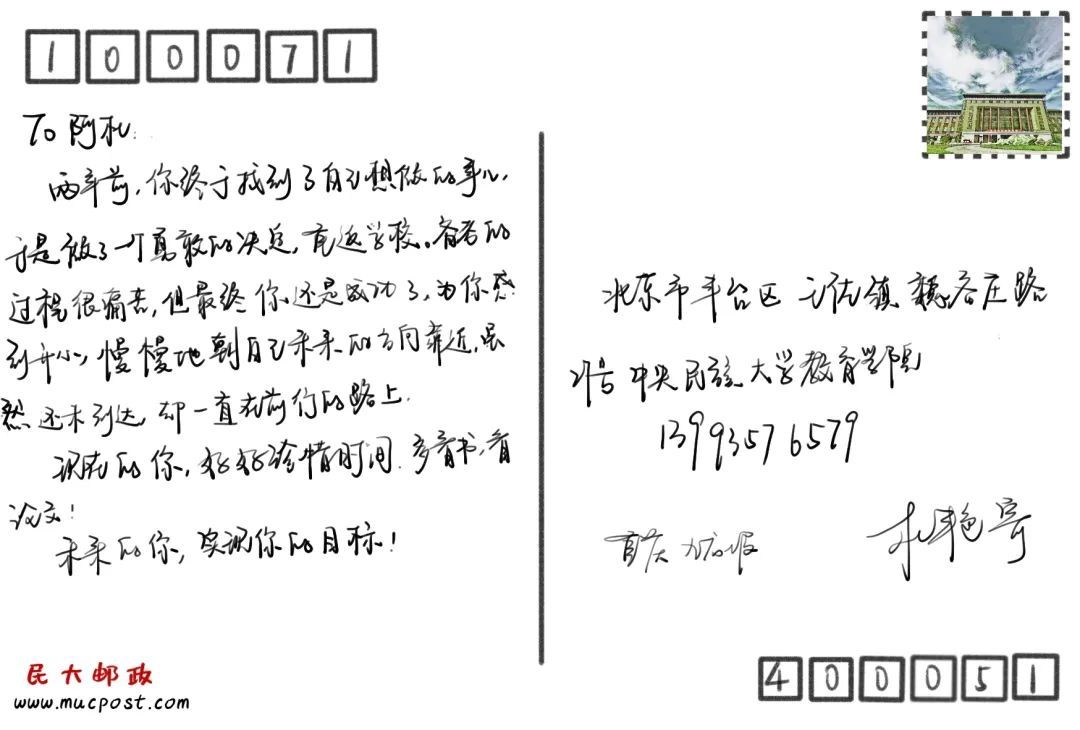 100071
To 阿札:
两年前,你终于找到了自己想做的事儿,
于是做了一个勇敢的决定,重返学校。备考的
过程很痛苦,但最终你还是成功了,为你感
到开心,慢慢地朝自己未来的方向靠近,虽
然还未到达,却一直在前行的路上.
现在的你,好好珍惜时间.多看书,看
论文!
未来的你,实现你的目标!
民大邮政
www.mucpost.com
北京市丰台区 王佐镇 魏各庄路
号 中央民族大学教育学院
13993576579
重庆
艳 寄
400051